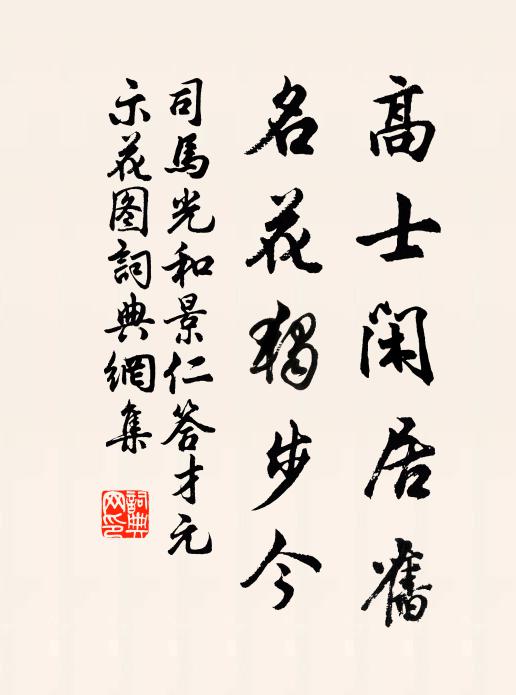 高士閑居舊
名花獨步今
司馬光和景仁答才元
示花图詞典網集
詞典网印